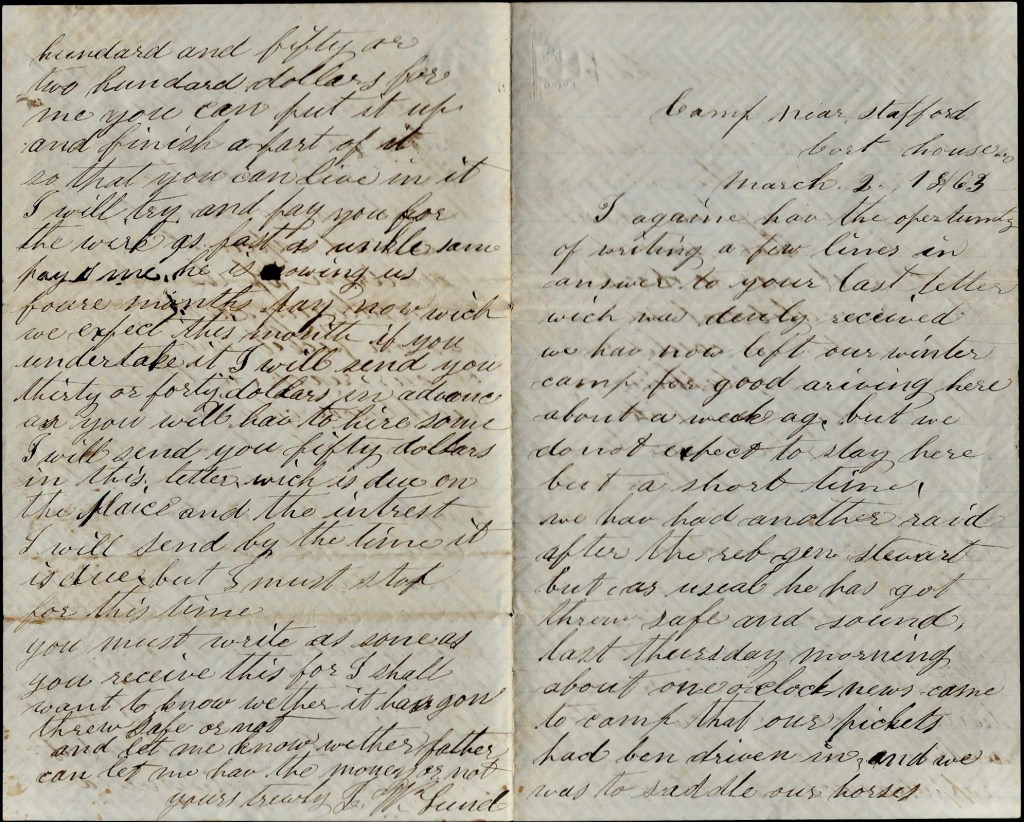 hundard and fifty or
two hundard dollars for
me you can put it up
and finish a part of it
so that you can live in it
I will try and pay you for
the wirk as fast as unkle same
pays me. he is owing us
foure months pay now wich
we expect this month if you
undertake it I will send you
thirty or forty dollars in advance
as you will hav to hire some
I will send you fifty dollars
in this letter wich is due on
the plaice and the intrest
I will send by the time it
is due but I must stop
for this time
you must write as sone as
you receive this for I shall
want to know wether it has gon
threw safe or not
and let me know wether father
can let me hav the money or not
yours trewly
Camp near Stafford
Cort house
March 2. 1863
I againe hav the opertunity
of writing a few lines in
answer to your last letter
wich was duly received
we hav now left our winter
camp for good ariving here
about a week ago. but we
do not expect to stay here
but a short time.
we hav had another raid
after the reb gen stewart
but as usual he has got
threw safe and sound.
last thursday morning
about one oclock news came
to camp that our pickets
had ben driven in, and we
was to saddle our horses